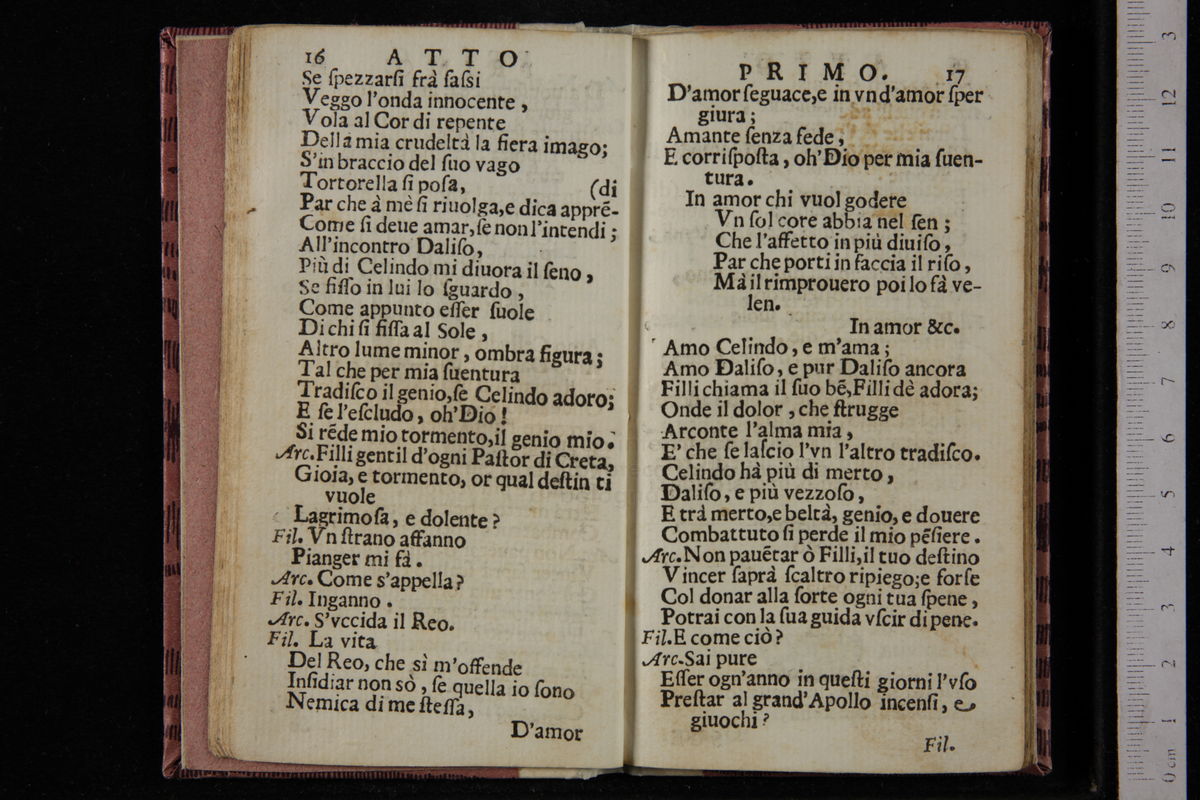 16 ATTO
Se ſpezzarſi frà ſaſsi
Veggo l'onda innocente,
Vola al Cor di repente
Della mia crudeltà la fiera imago;
S'in braccio del ſuo vago
Tortorella ſi poſa, (di
Par che à mè ſi riuolga,e dica apprẽ-
Come ſi deue amar,ſe non l'intendi;
All'incontro Daliſo,
Più di Celindo mi diuora il ſeno,
Se fiſſo in lui lo ſguardo,
Come appunto eſſer ſuole
Di chi ſi fiſſa al Sole,
Altro lume minor, ombra figura;
Tal che per mia ſuentura
Tradiſco il genio,ſe Celindo adoro;
E ſe l'eſcludo, oh'Dio!
Si rẽde mio tormento,il genio mio.
Arc.Filli gentil d'ogni Paſtor di Creta,
Gioia, e tormento, or qual deſtin ti
vuole
Lagrimoſa, e dolente?
Fil. Vn ſtrano affanno
Pianger mi fà.
Arc. Come s'appella?
Fil. Inganno.
Arc. S'vccida il Reo.
Fil. La vita
Del Reo, che sì m'offende
Inſidiar non sò, ſe quella io ſono
Nemica di me ſteſſa,
D'amor
PRIMO. 17
D'amor ſeguace,e in vn d'amor ſper
giura;
Amante ſenza fede,
E corriſpoſta, oh'Dio per mia ſuen-
tura.
In amor chi vuol godere
Vn ſol core abbia nel ſen;
Che l'affetto in più diuiſo,
Par che porti in faccia il riſo,
Mà il rimprouero poi lo fà ve-
len.
In amor &c.
Amo Celindo, e m'ama;
Amo Daliſo, e pur Daliſo ancora
Filli chiama il ſuo bẽ,Filli dè adora;
Onde il dolor, che ſtrugge
Arconte l'alma mia,
E' che ſe laſcio l'vn l'altro tradiſco.
Celindo hà più di merto,
Daliſo, e più vezzoſo,
E trà merto,e beltà, genio, e douere
Combattuto ſi perde il mio pẽſiere.
Arc.Non pauẽtar ò Filli,il tuo deſtino
Vincer ſaprà ſcaltro ripiego;e forſe
Col donar alla ſorte ogni tua ſpene,
Potrai con la ſua guida vſcir di pene.
Fil.E come ciò?
Arc.Sai pure
Eſſer ogn'anno in queſti giorni l'vſo
Preſtar al grand'Apollo incenſi, e
giuochi?
Fil.
3
12
11
10
9
8
7
6
5
4
3
2
1
0 cm